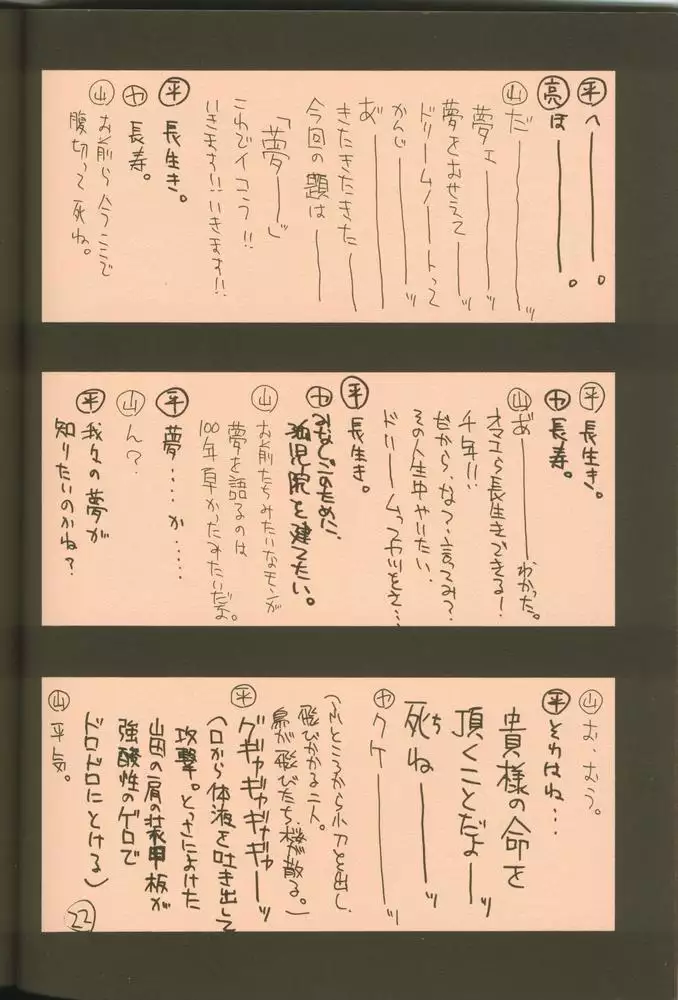 平 へ―――――。
亮 ほ―――――。
山 だ―――――ッ
夢ェ―――――ッ
夢をおせえて―――ッ
ドリームノートって
かんじ―――ッ
あ゛―――――
きたきたきた―――
今回の題は―――
「夢―――」
これでイコう!!
いきます!!いきます!!
平 長生き。
ヤ 長寿。
山 お前ら今ここで
腹切って死ね。
平 長生き。
ヤ 長寿。
山 あ゛―――――わかった。
オマエら長生きできる!
千年!!
だから、な?、言ってみ?
その人生中やいたい、
ドリームってやいをさ…
平 長生き。
ヤ みなしごのために、
孤児院を建てたい。
山 お前たちみたいなモンが
夢を語るのは
100年早かったみたいだよ。
平 夢‥‥か‥‥‥
山 ん?
平 我々の夢が
知りたいのかね?
山 む、むう。
平 それはね…
貴様の命を
頂くことだよ―ッ
死ね―――――ッ
ち
ヤ クケ―――――ッ
(ふところから小刀を出し、
飛びかかる二人。
鳥が飛びたち、桜が散る。)
平 グギャギャギャギャ―ッ
(口から体液を吐き出して
攻撃。とっさによけた
山田の肩の装甲板が
強酸性のゲロで
ドロドロにとける)
山 平気。
22